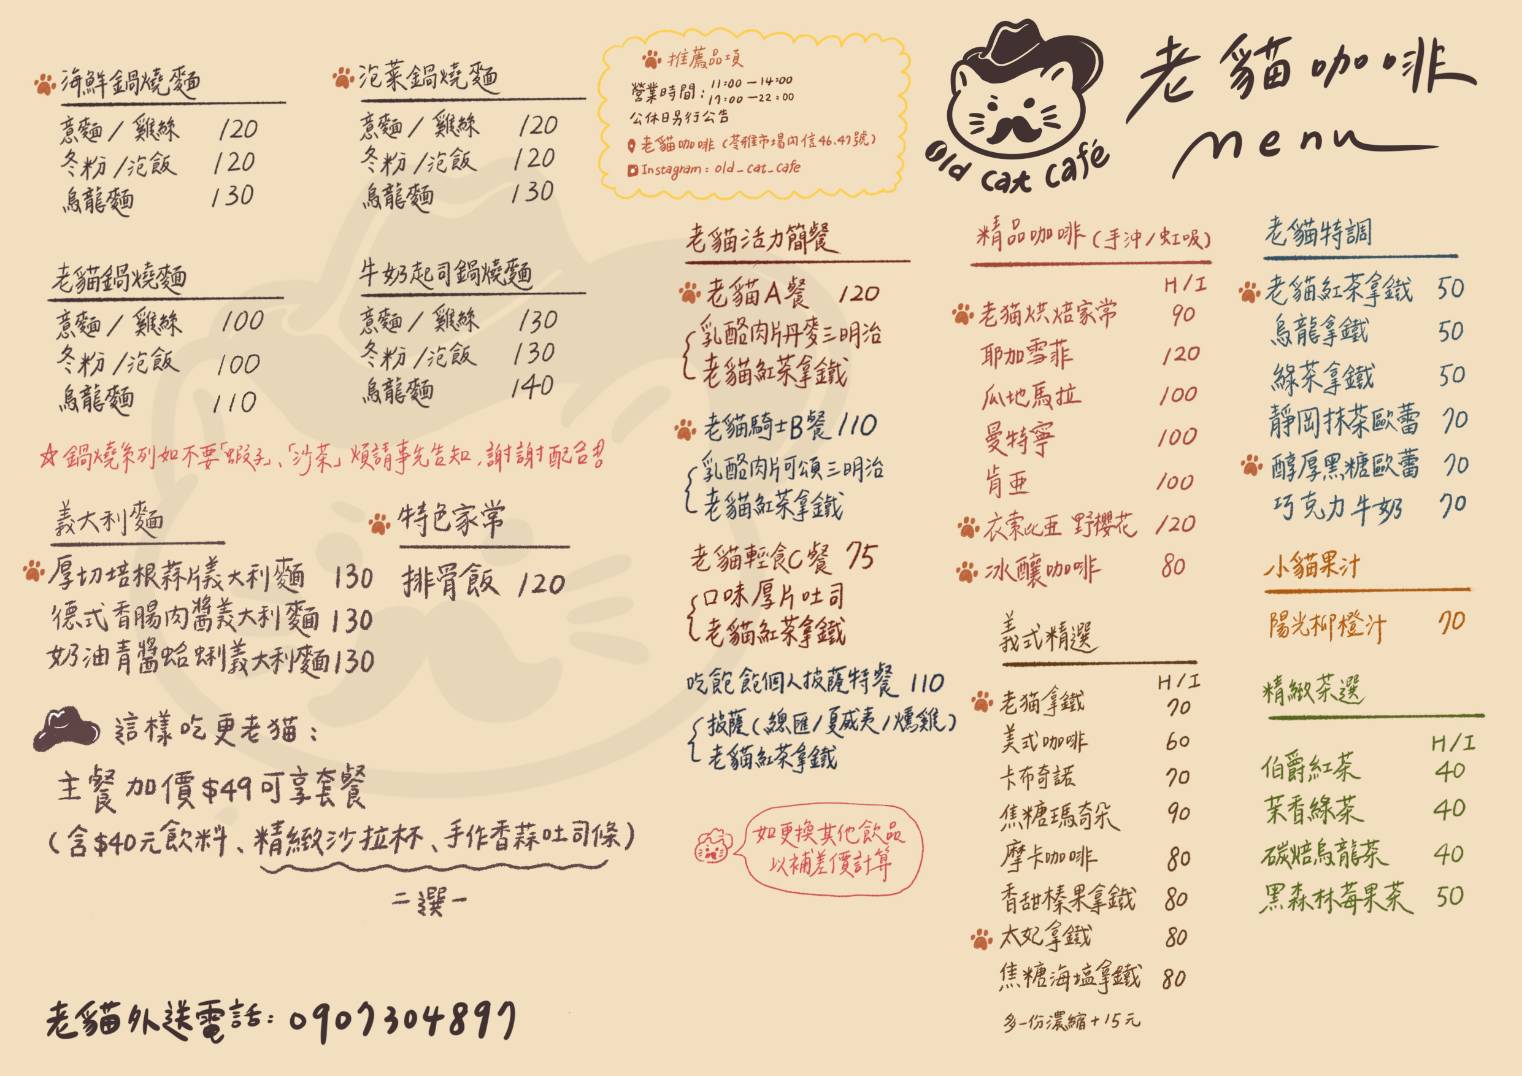 老貓咖啡
menu
Old Cat Café
推薦品項
營業時間：11:00－14:00
17:00－22:00
公休日另行公告
老貓咖啡（苓雅市場內信46.47號）
Instagram：old_cat_cafe
海鮮鍋燒麵
意麵／雞絲 120
冬粉／泡飯 120
烏龍麵 130
泡菜鍋燒麵
意麵／雞絲 120
冬粉／泡飯 120
烏龍麵 130
老貓鍋燒麵
意麵／雞絲 100
冬粉／泡飯 100
烏龍麵 110
牛奶起司鍋燒麵
意麵／雞絲 130
冬粉／泡飯 130
烏龍麵 140
☆鍋燒系列如不要「蝦子」、「沙茶」煩請事先告知，謝謝配合！
義大利麵
厚切培根蒜片義大利麵 130
德式香腸肉醬義大利麵 130
奶油青醬蛤蜊義大利麵 130
特色家常
排骨飯 120
這樣吃更老猫：
主餐加價$49可享套餐
（含$40元飲料、精緻沙拉杯、手作香蒜吐司條）
二選一
老貓外送電話：0907304897
老貓活力簡餐
老貓A餐 120
乳酪肉片丹麥三明治
老貓紅茶拿鐵
老貓騎士B餐 110
乳酪肉片可頌三明治
老貓紅茶拿鐵
老貓輕食C餐 75
口味厚片吐司
老貓紅茶拿鐵
吃飽飽個人披薩特餐 110
披薩（總匯／夏威夷／燻雞）
老貓紅茶拿鐵
如更換其他飲品
以補差價計算
精品咖啡（手沖／虹吸）
H/I
老猫烘焙家常 90
耶加雪菲 120
瓜地馬拉 100
曼特寧 100
肯亞 100
衣索比亞 野櫻花 120
冰釀咖啡 80
義式精選
H/I
老猫拿鐵 70
美式咖啡 60
卡布奇諾 70
焦糖瑪奇朵 90
摩卡咖啡 80
香甜榛果拿鐵 80
太妃拿鐵 80
焦糖海塩拿鐵 80
多一份濃縮+15元
老貓特調
老貓紅茶拿鐵 50
烏龍拿鐵 50
綠茶拿鐵 50
靜岡抹茶歐蕾 70
醇厚黑糖歐蕾 70
巧克力牛奶 70
小貓果汁
陽光柳橙汁 70
精緻茶選
H/I
伯爵紅茶 40
茉香綠茶 40
碳焙烏龍茶 40
黑森林莓果茶 50